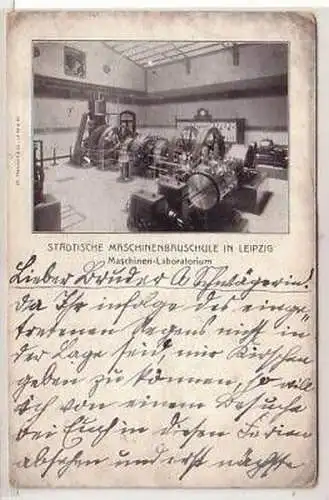 STÄDTISCHE MASCHINENBAUSCHULE IN LEIPZIG
Maschinen-Laboratorium
Lieber Bruder & Schwägerin!
Da Ihr infolge des einge-
tretenen Regens nicht in
der Lage seid, mir Kirschen
geben zu können, so will
ich von einem Besuche
bei Euch in diesen Ferien
absehen und erst nächste